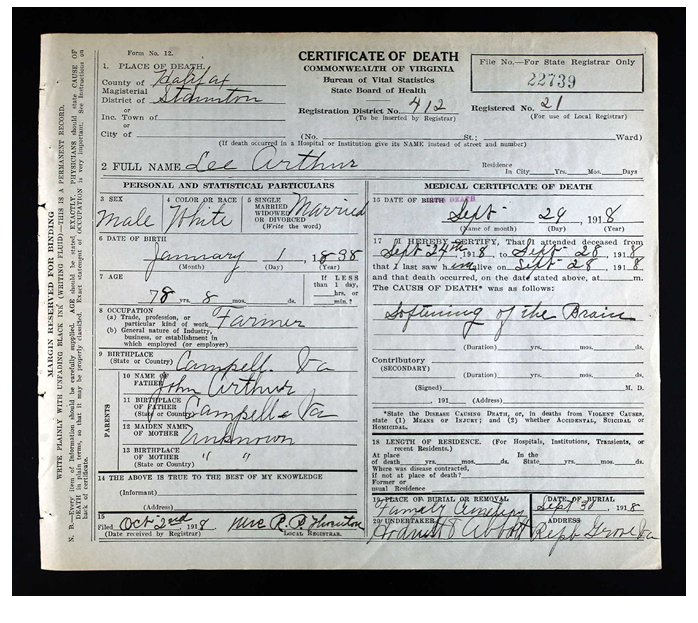 Form No. 12.
CERTIFICATE OF DEATH
COMMONWEALTH OF VIRGINIA
Bureau of Vital Statistics
State Board of Health
File No.—For State Registrar Only
22739
1. PLACE OF DEATH.
County of Halifax
Magisterial
District of Staunton
or
Inc. Town of
or
City of
Registration District No. 412
(To be inserted by Registrar)
Registered No. 21
(For use of Local Registrar)
(No. St.; Ward)
(If death occurred in a Hospital or Institution give its NAME instead of street and number)
2 FULL NAME Lee Arthur
Residence
In City Yrs. Mos. Days
PERSONAL AND STATISTICAL PARTICULARS
3 SEX
Male
4 COLOR OR RACE
White
5 SINGLE
MARRIED
WIDOWED
OR DIVORCED
(Write the word)
Married
6 DATE OF BIRTH
January 1, 1838
(Month) (Day) (Year)
7 AGE
78 yrs. 8 mos. ds.
If LESS
than 1 day,
hrs. or
min.?
8 OCCUPATION
(a) Trade, profession, or
particular kind of work Farmer
(b) General nature of Industry,
business, or establishment in
which employed (or employer)
9 BIRTHPLACE
(State or Country) Campell Va
PARENTS
10 NAME OF
FATHER John Arthur
11 BIRTHPLACE
OF FATHER
(State or Country) Campell Va
12 MAIDEN NAME
OF MOTHER Unknown
13 BIRTHPLACE
OF MOTHER
(State or Country) " "
14 THE ABOVE IS TRUE TO THE BEST OF MY KNOWLEDGE
(Informant)
(Address)
15
Filed Oct 2nd 1918
(Date received by Registrar)
LOCAL REGISTRAR.
MEDICAL CERTIFICATE OF DEATH
16 DATE OF BIRTH DEATH
Sept 29, 1918
(Name of month) (Day) (Year)
17 I HEREBY CERTIFY, That I attended deceased from
Sept 24th, 1918, to Sept 28, 1918
that I last saw him alive on Sept 28, 1918
and that death occurred, on the date stated above, at m.
The CAUSE OF DEATH* was as follows:
Softening of the Brain
(Duration) yrs. mos. ds.
Contributory
(SECONDARY)
(Duration) yrs. mos. ds.
(Signed) M. D.
, 191 (Address)
*State the DISEASE CAUSING DEATH, or, in deaths from VIOLENT CAUSES,
state (1) MEANS OF INJURY; and (2) whether ACCIDENTAL, SUICIDAL or
HOMICIDAL.
18 LENGTH OF RESIDENCE. (For Hospitals, Institutions, Transients, or
recent Residents.)
At place In the
of death yrs. mos. ds. State yrs. mos. ds.
Where was disease contracted,
If not at place of death?
Former or
usual Residence
19 PLACE OF BURIAL OR REMOVAL
Family
DATE OF BURIAL
Sept 30, 1918
20 UNDERTAKER
Abbott
ADDRESS
Grove Va
MARGIN RESERVED FOR BINDING
WRITE PLAINLY WITH UNFADING BLACK INK (WRITING FLUID)—THIS IS A PERMANENT RECORD.
N. B.—Every item of Information should be carefully supplied. AGE should be stated EXACTLY. PHYSICIANS should state CAUSE OF
DEATH in plain terms, so that it may be properly classified. Exact statement of OCCUPATION is very important. See Instructions on
back of certificate.